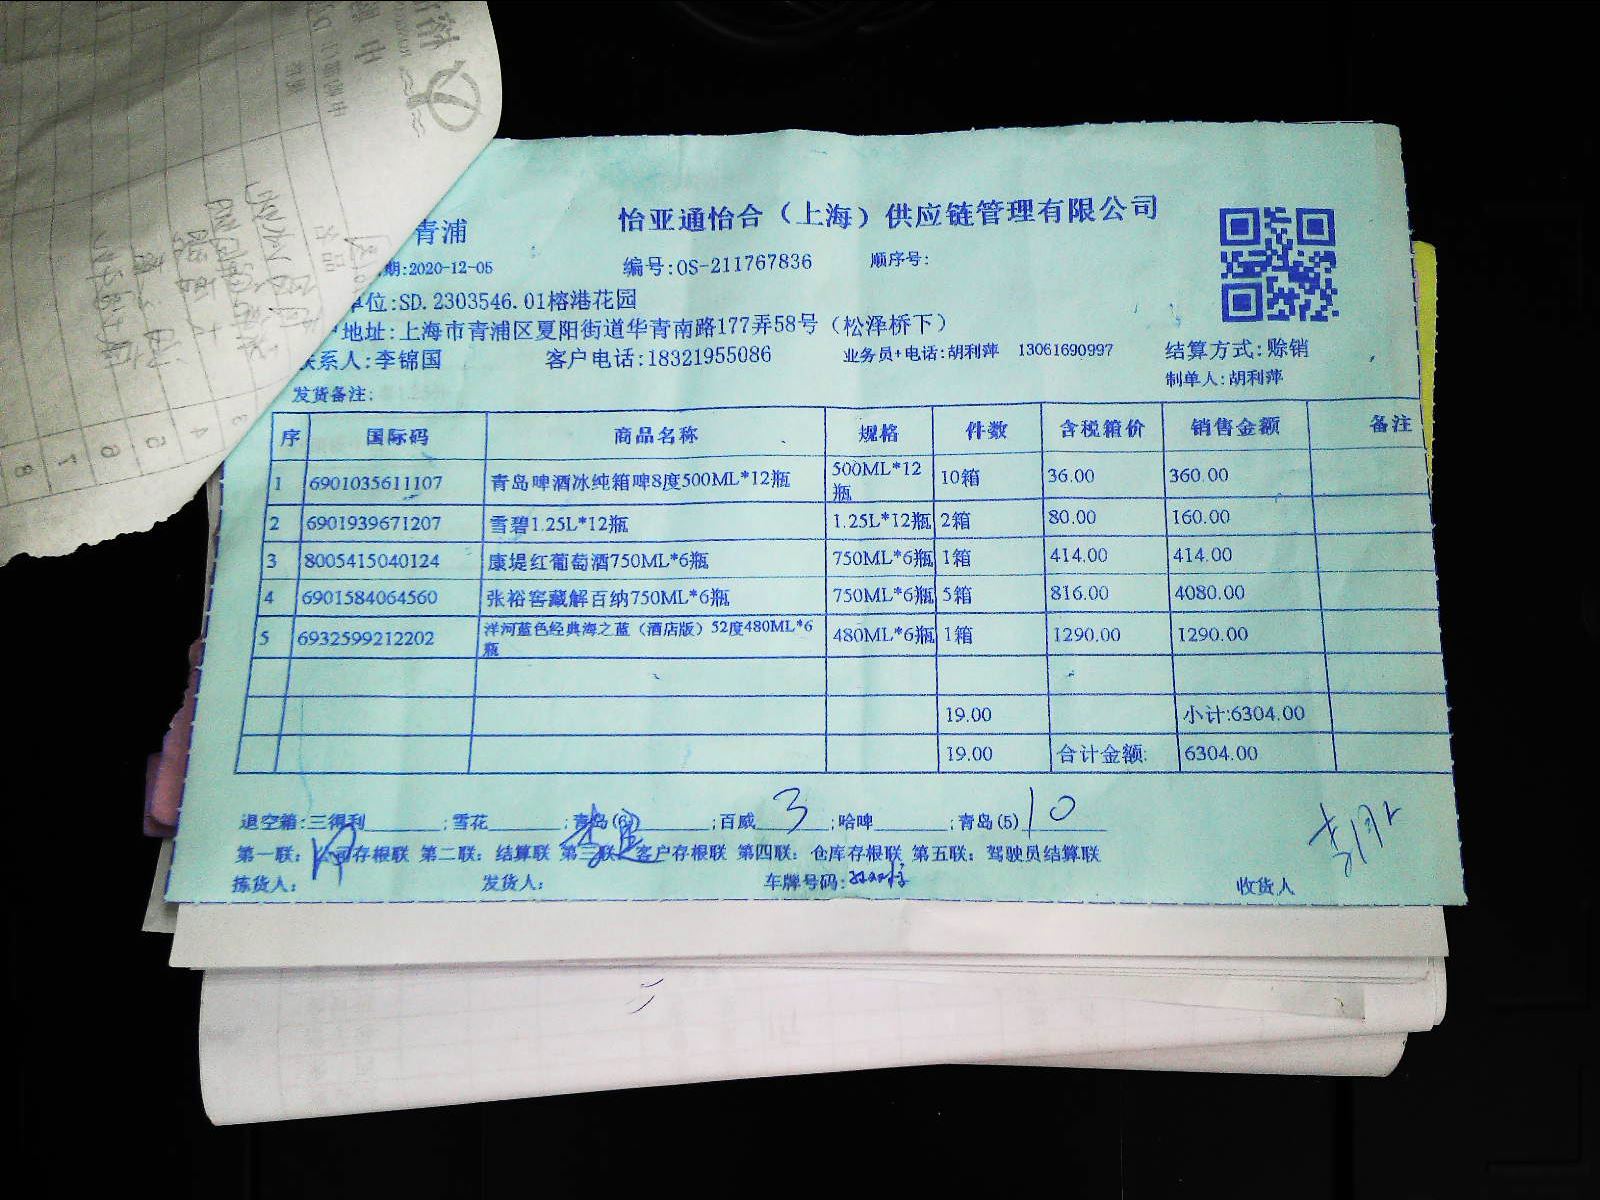 青浦
怡亚通怡合（上海）供应链管理有限公司
期:2020-12-05
编号:OS-211767836
顺序号:
单位:SD.2303546.01榕港花园
户地址:上海市青浦区夏阳街道华青南路177弄58号（松泽桥下）
联系人:李锦国 客户电话:18321955086 业务员+电话:胡利萍 13061690997 结算方式:赊销
发货备注: 制单人:胡利萍
序 国际码 商品名称 规格 件数 含税箱价 销售金额 备注
1 6901035611107 青岛啤酒冰纯箱啤8度500ML*12瓶 500ML*12瓶 10箱 36.00 360.00
2 6901939671207 雪碧1.25L*12瓶 1.25L*12瓶 2箱 80.00 160.00
3 8005415040124 康堤红葡萄酒750ML*6瓶 750ML*6瓶 1箱 414.00 414.00
4 6901584064560 张裕窖藏解百纳750ML*6瓶 750ML*6瓶 5箱 816.00 4080.00
5 6932599212202 洋河蓝色经典海之蓝（酒店版）52度480ML*6瓶 480ML*6瓶 1箱 1290.00 1290.00
19.00 小计:6304.00
19.00 合计金额: 6304.00
退空箱:三得利 ;雪花 ;青岛(6) ;百威 3 ;哈啤 ;青岛(5) 10
第一联: 公司存根联 第二联: 结算联 第三联: 客户存根联 第四联: 仓库存根联 第五联: 驾驶员结算联
拣货人: 发货人: 车牌号码: 收货人